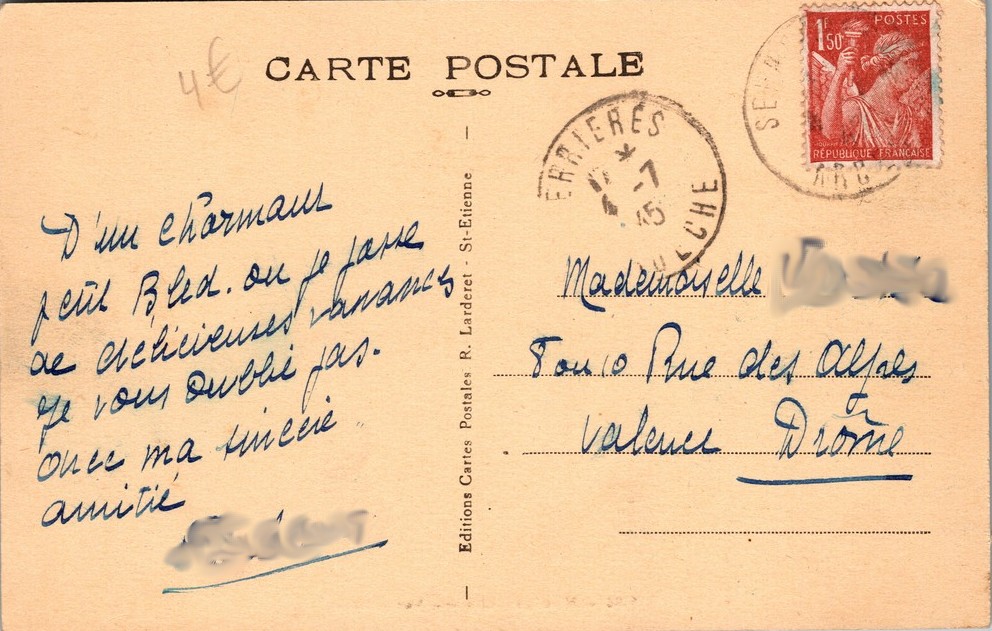 4€
CARTE POSTALE
1F50
POSTES
RÉPUBLIQUE FRANÇAISE
ERRIERES
-7
45
CHE
D'un charmant
petit Bled. ou je passe
de délicieuses vacances
je vous oublie pas.
avec ma sincère
amitié
Editions Cartes Postales R. Larderet - St-Etienne
Mademoiselle
8 ou 10 Rue des Alpes
Valence Drôme